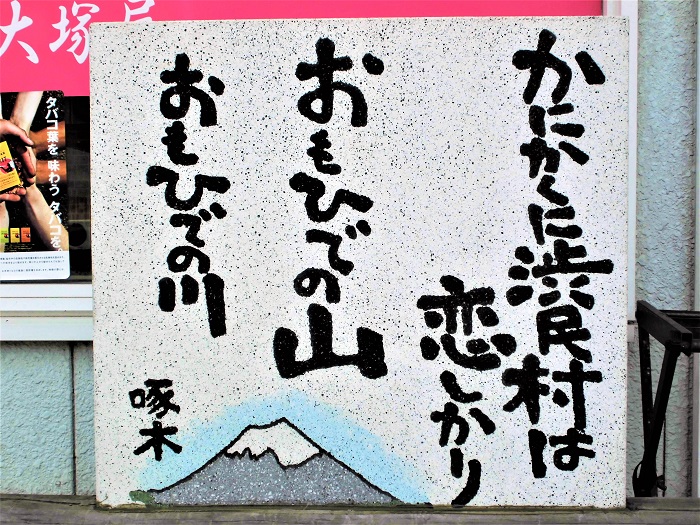 大塚屋
かにかくに渋民村は
恋しかり
おもひでの山
おもひでの川
啄木
タバコ葉を味わう タバコを、